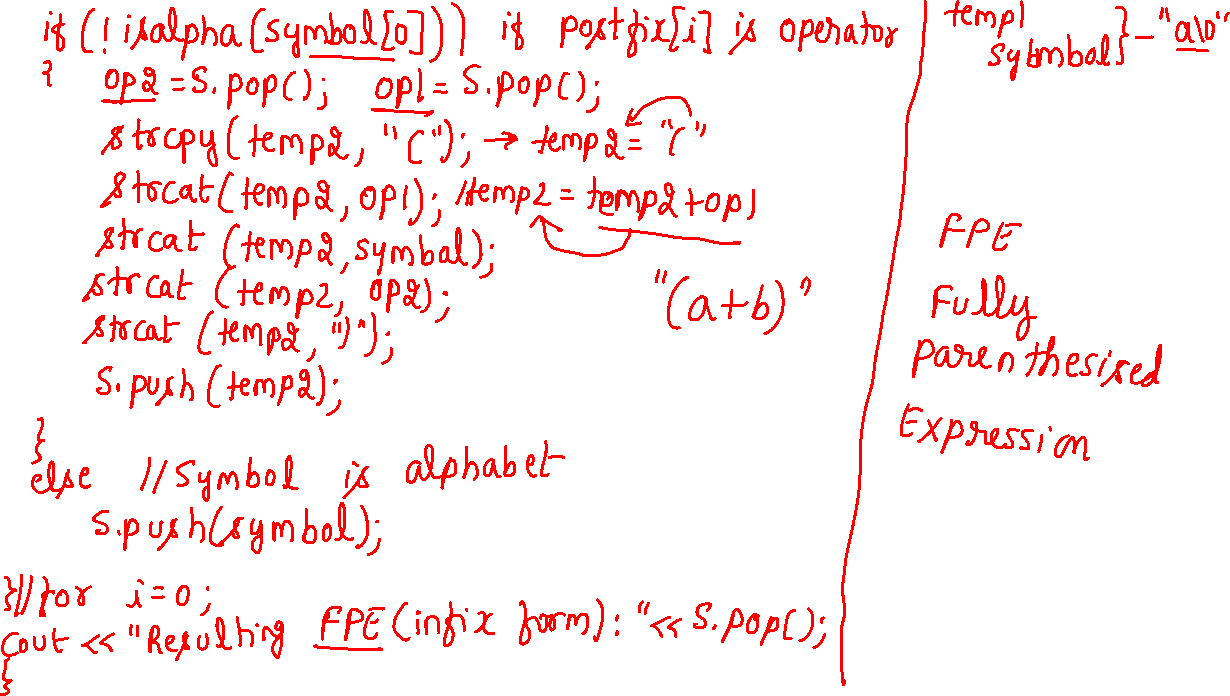 if (! isalpha(symbol[0])) if postfix[i] is operator
{ op2 = S.pop(); op1 = S.pop();
strcpy(temp2, "("); → temp2 = "("
strcat(temp2, op1); //temp2 = temp2+op1
strcat (temp2, symbal);
strcat (temp2, op2);
strcat (temp2, ")");
S.push (temp2);
"(a+b)"
}
else // Symbol is alphabet
S.push(symbol);
}//for i=0;
cout << "Resulting FPE (infix form): "<< S.pop();
}
temp1
symbal} - "a\0"
FPE
Fully
Parenthesised
Expression